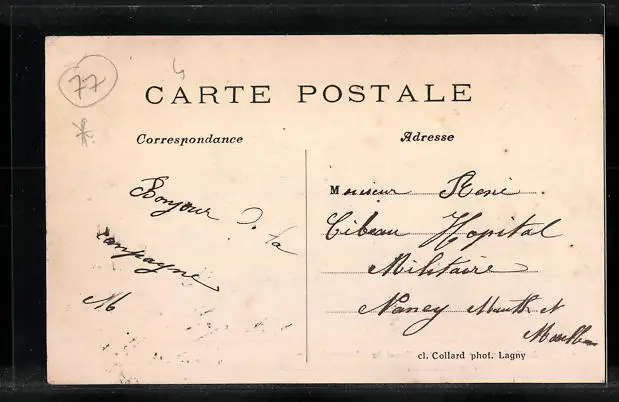 77
CARTE POSTALE
Correspondance
Adresse
Bonjour D. la
campagne
M
Monsieur René
Cibeau Hopital
Militaire
Nancy Meurthe et
Moselle
cl. Collard phot. Lagny